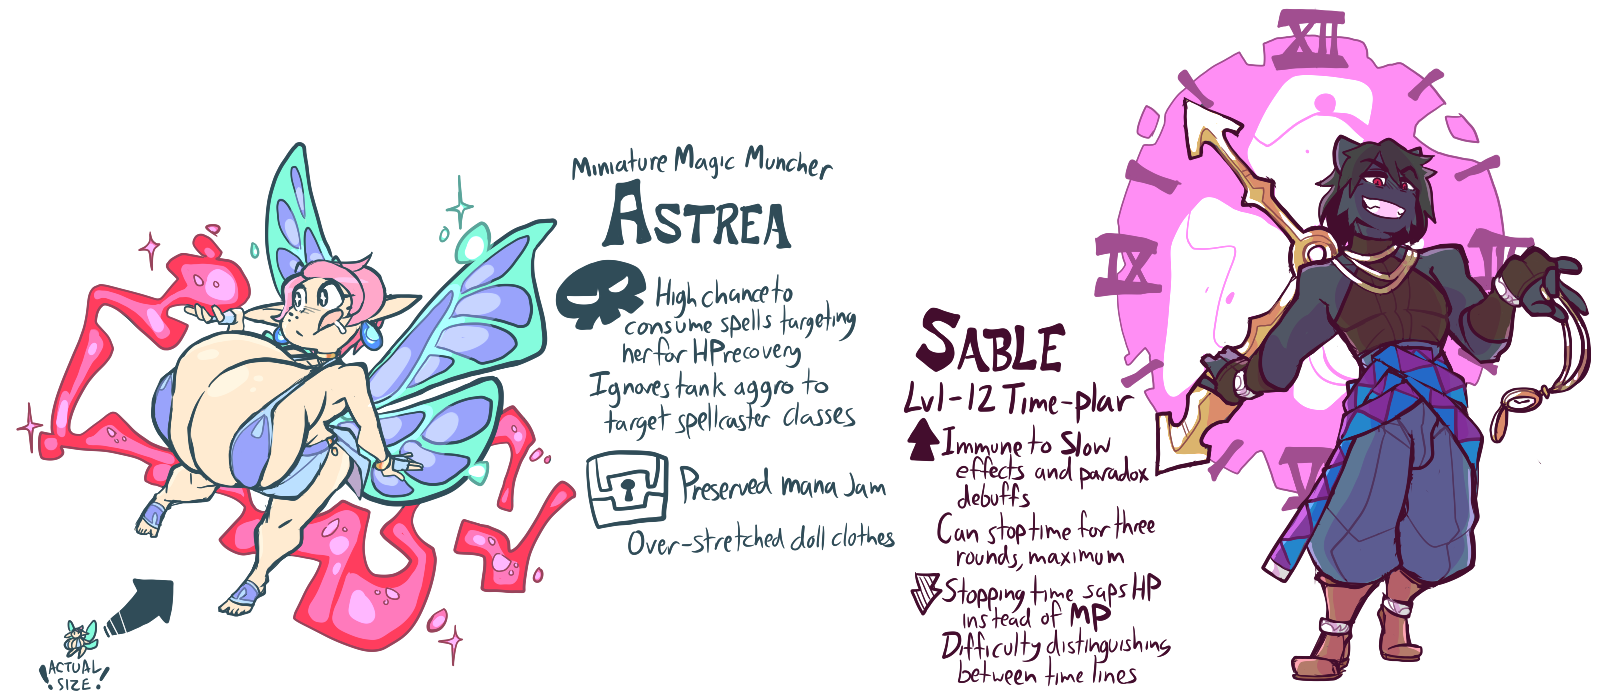 Miniature Magic Muncher
Astrea
High chance to
consume spells targeting
her for HP recovery
Ignores tank aggro to
target spellcaster classes
Preserved mana Jam
Over-stretched doll clothes
ACTUAL
SIZE!
Sable
Lvl-12 Time-plar
Immune to Slow
effects and paradox
debuffs
Can stop time for three
rounds, maximum
Stopping time saps HP
instead of MP
Difficulty distinguishing
between time lines
XII
IX